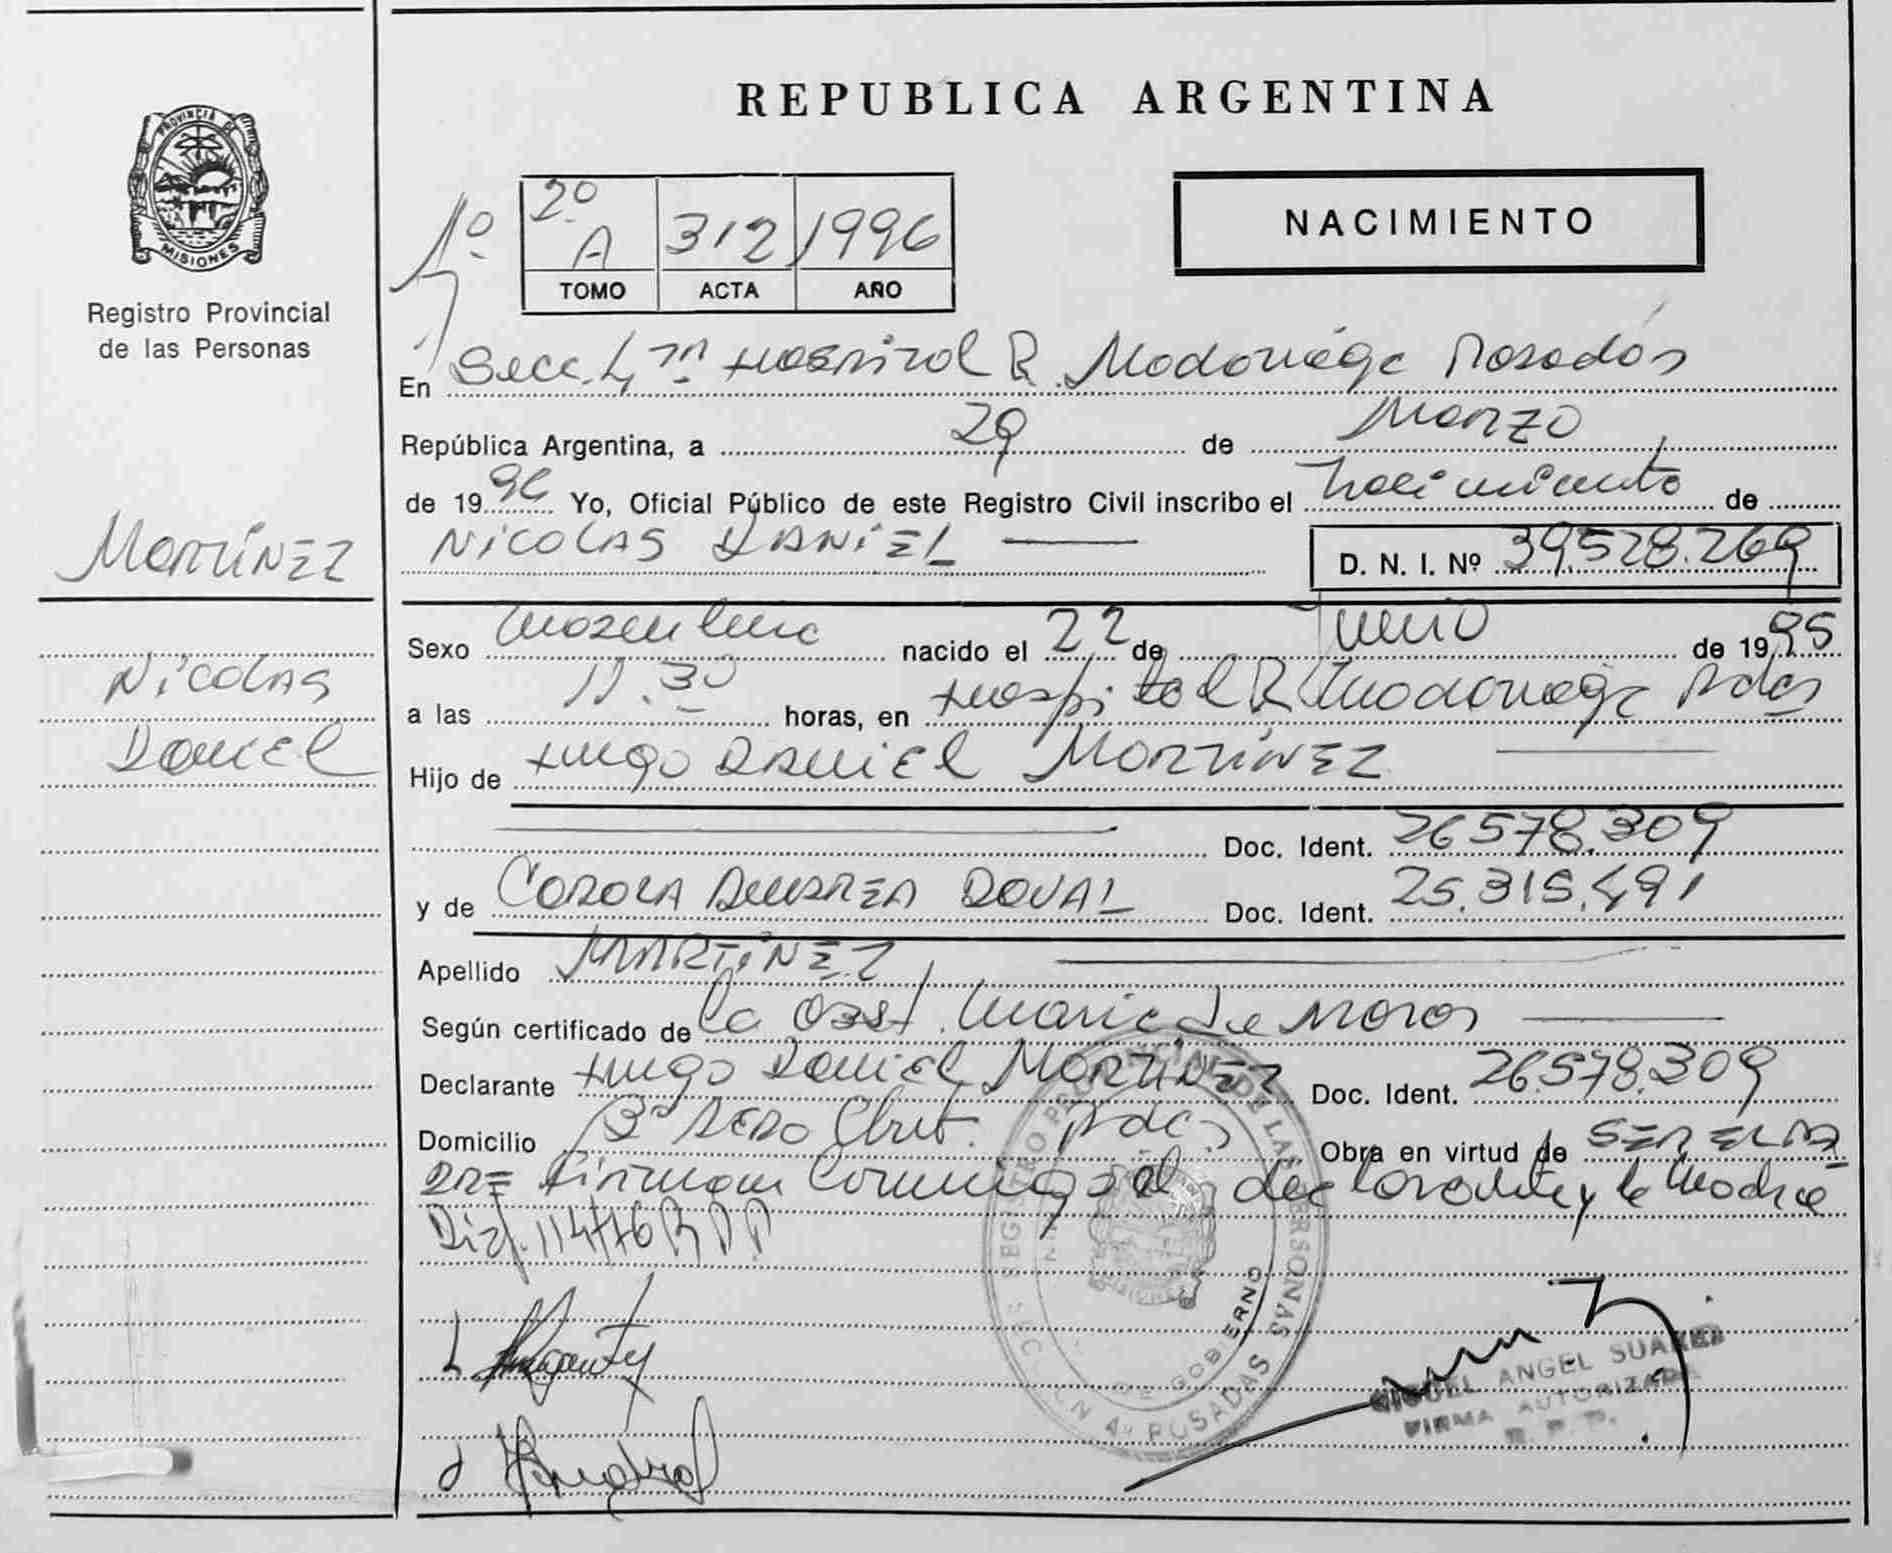 REPUBLICA ARGENTINA
PROVINCIA DE
MISIONES
Registro Provincial
de las Personas
NACIMIENTO
1º
2º A 312 1996
TOMO ACTA AÑO
En Secc. 4ta Hospital R. Madariaga Posadas
República Argentina, a 29 de Marzo
de 1996 Yo, Oficial Público de este Registro Civil inscribo el Nacimiento de
NICOLAS DANIEL
D. N. I. Nº 39.528.269
MARTÍNEZ
Nicolas
Daniel
Sexo masculino nacido el 22 de Junio de 1995
a las 11.30 horas, en Hospital R. Madariaga Pdas
Hijo de Hugo DANIEL MARTÍNEZ
Doc. Ident. 26578.309
y de ANDREA DOVAL Doc. Ident. 25.315.491
Apellido MARTÍNEZ
Según certificado de la Obst. Maria de
Declarante Hugo Daniel MARTÍNEZ Doc. Ident. 26.578.309
Domicilio Pdas Obra en virtud de
firman conmigo el declarante y la Madre
114/76
REGISTRO PROVINCIAL DE LAS PERSONAS
DE GOBIERNO
4º POSADAS
MIGUEL ANGEL SUAREZ
FIRMA AUTORIZADA
R. P. P.